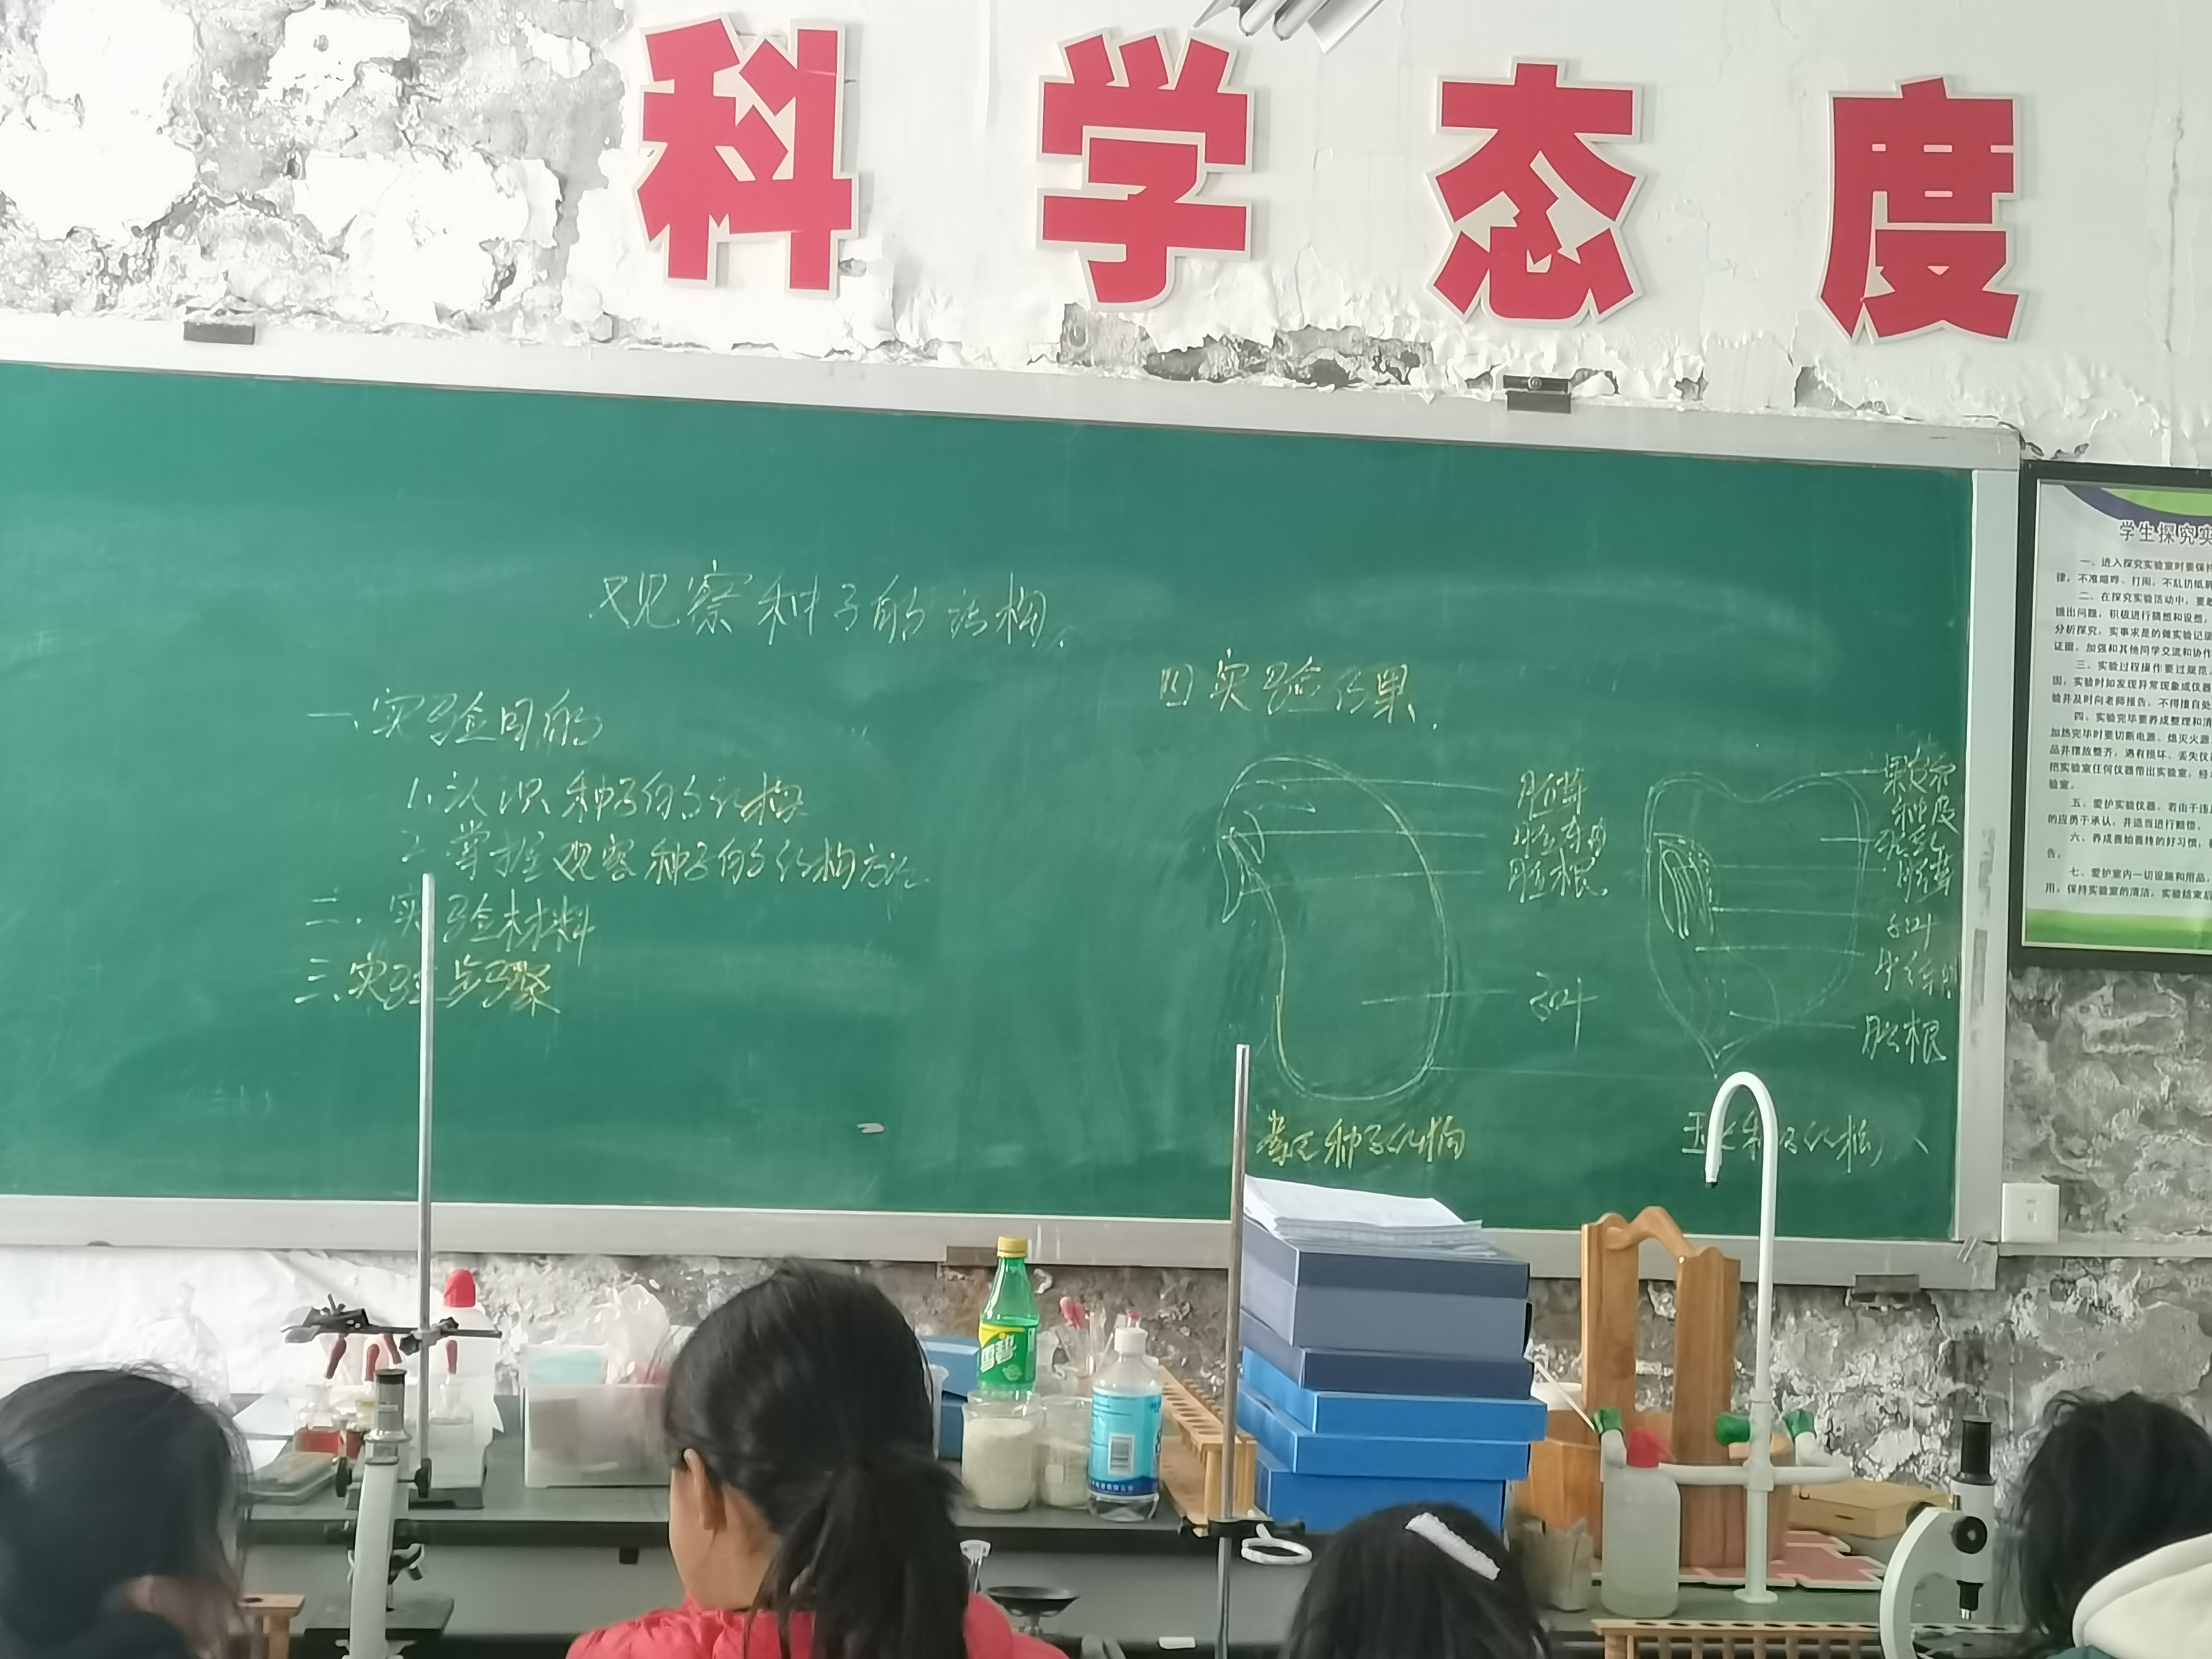 科学态度
观察种子的结构
一.实验目的
1.认识种子的结构
2.掌握观察种子的结构方法
二.实验材料
三.实验步骤
四实验结果.
胚芽
胚轴
胚根
子叶
菜豆种子结构
果皮和
种皮
胚乳
胚芽
子叶
胚轴
胚根
玉米种子结构
雪碧
学生探究实
一、进入探究实验室时要保持
律，不准喧哗、打闹，不乱扔纸
二、在探究实验活动中，要
提出问题，积极进行猜想和设想，
分析探究，实事求是的做实验记
证据，加强和其他同学交流和协作
三、实验过程操作要过规范，
固，实验时如发现异常现象或仪器
验并及时向老师报告，不得擅自处
四、实验完毕要养成整理和清
加热完毕时要切断电源、熄灭火源
品并摆放整齐，遇有损坏、丢失仪
把实验室任何仪器带出实验室，经
验室。
五、爱护实验仪器，若由于违
的应勇于承认，并适当进行赔偿。
六、养成善始善终的好习惯，
告。
七、爱护室内一切设施和用品，
用，保持实验室的清洁，实验结束后